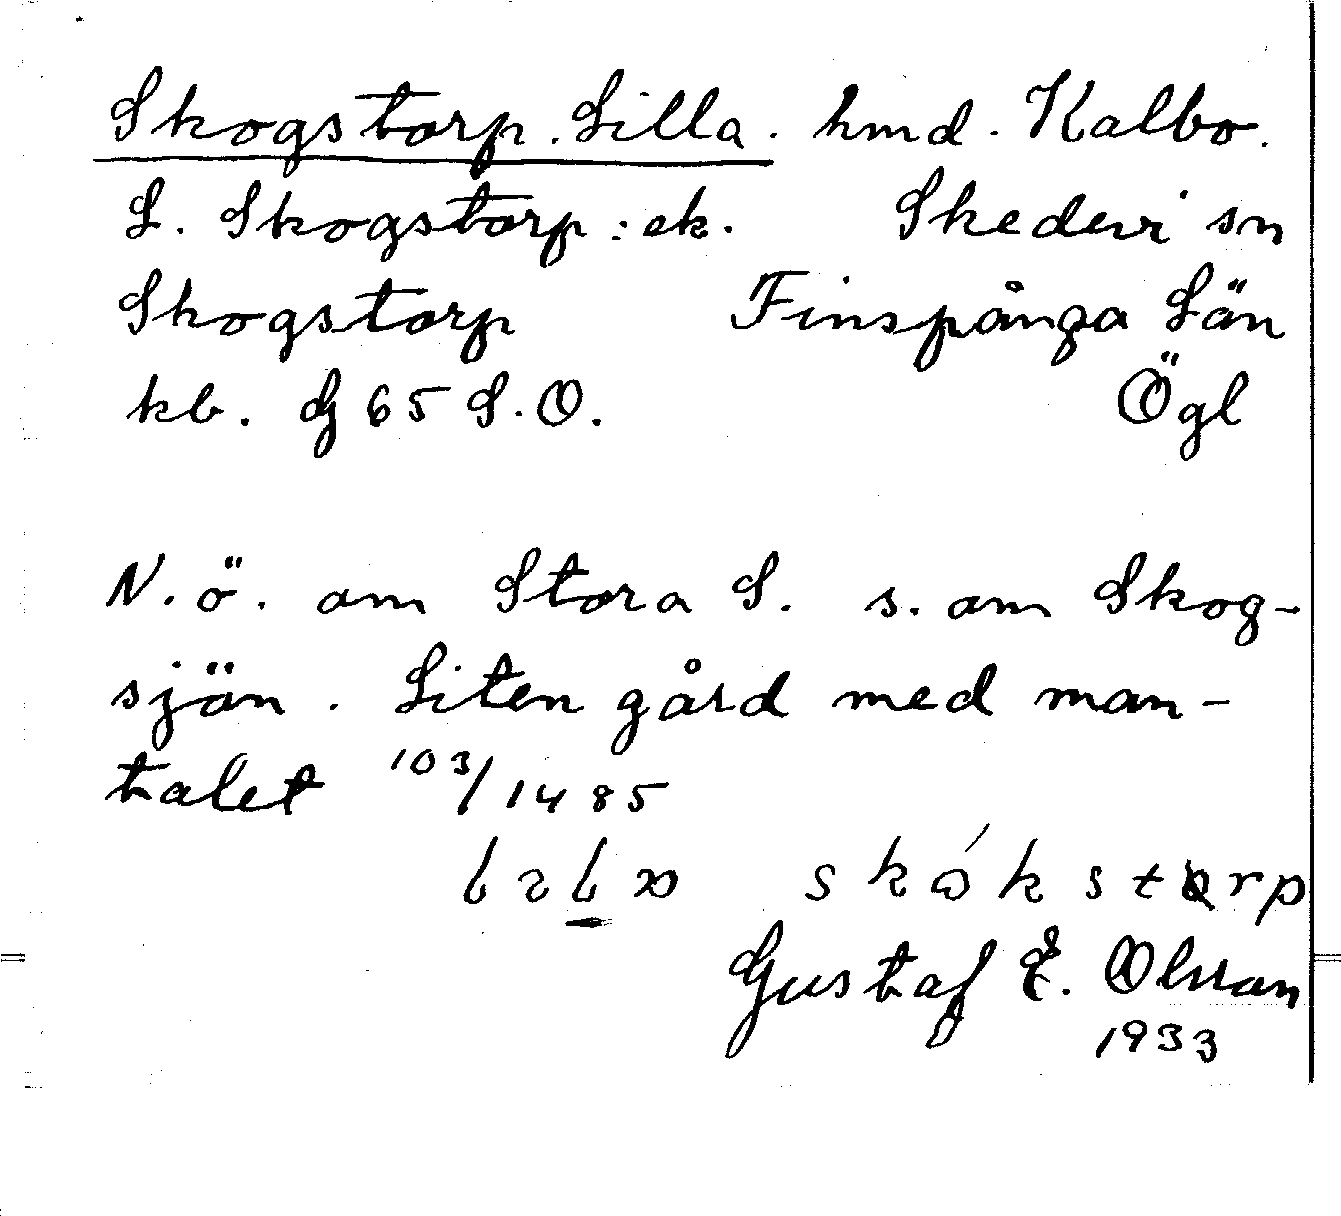 Skogstorp. Lilla. hmd. Kalbo.
L. Skogstorp: ek. Skedevi sn
Skogstorp Finspånga Län
kb. dj 65 S.O. Ögl
N.ö. om Stora S. s. om Skog-
sjön. Liten gård med man-
talet 103/1485
skókstorp
Gustaf E. Olsson
1933